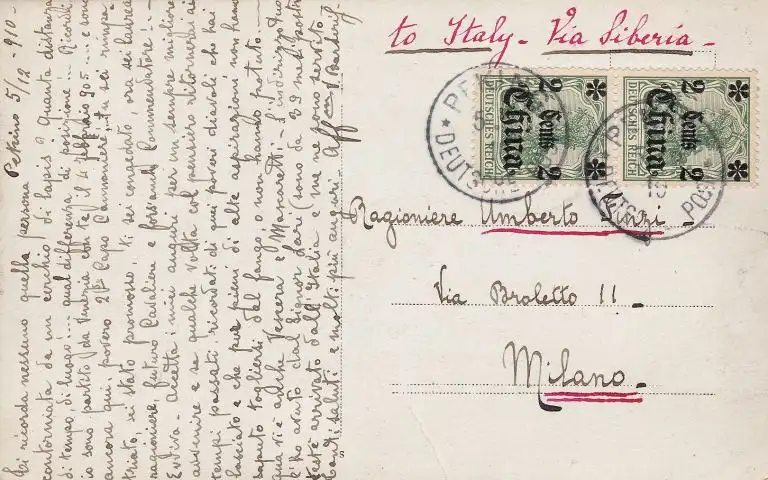 Pekino 5/12 - 910 -
Ti ricorda nessuno quella persona
contorniata da un cerchio di lapis? Quanta distanza
di tempo, di luogo!... qual differenza di posizione... Ricordi
io sono partito da Venezia con te il 4 febbraio 905 ... e sono
ancora qui, povero 2º Capo Cannoniere, tu sei rimpa-
triato, sei stato promosso, ti sei congedato, ora sei
ragioniere, futuro Cavaliere e forsanche Commendatore!..-
Evviva - Accetta i miei auguri per un sempre migliore
avvenire e se qualche volta col pensiero ritornerai ai
tempi passati, ricordati di quei poveri diavoli che hai
lasciato e che pur pieni di alte aspirazioni non hanno
saputo togliersi dal fango, o non hanno potuto. -
qua vi è anche Vescera e - l'indirizzo tuo
l'ho avuto dal Signor Lari (sono da 29 mesi
testè arrivato dall'Italia e me ne sono servito
Tanti saluti e molti più auguri - Aff mo V
to Italy - Via Siberia -
2 Cents 2
China
DEUTSCHES REICH
2 Cents 2
China
DEUTSCHES REICH
Ragioniere Umberto
Via Broletto 11 -
Milano -